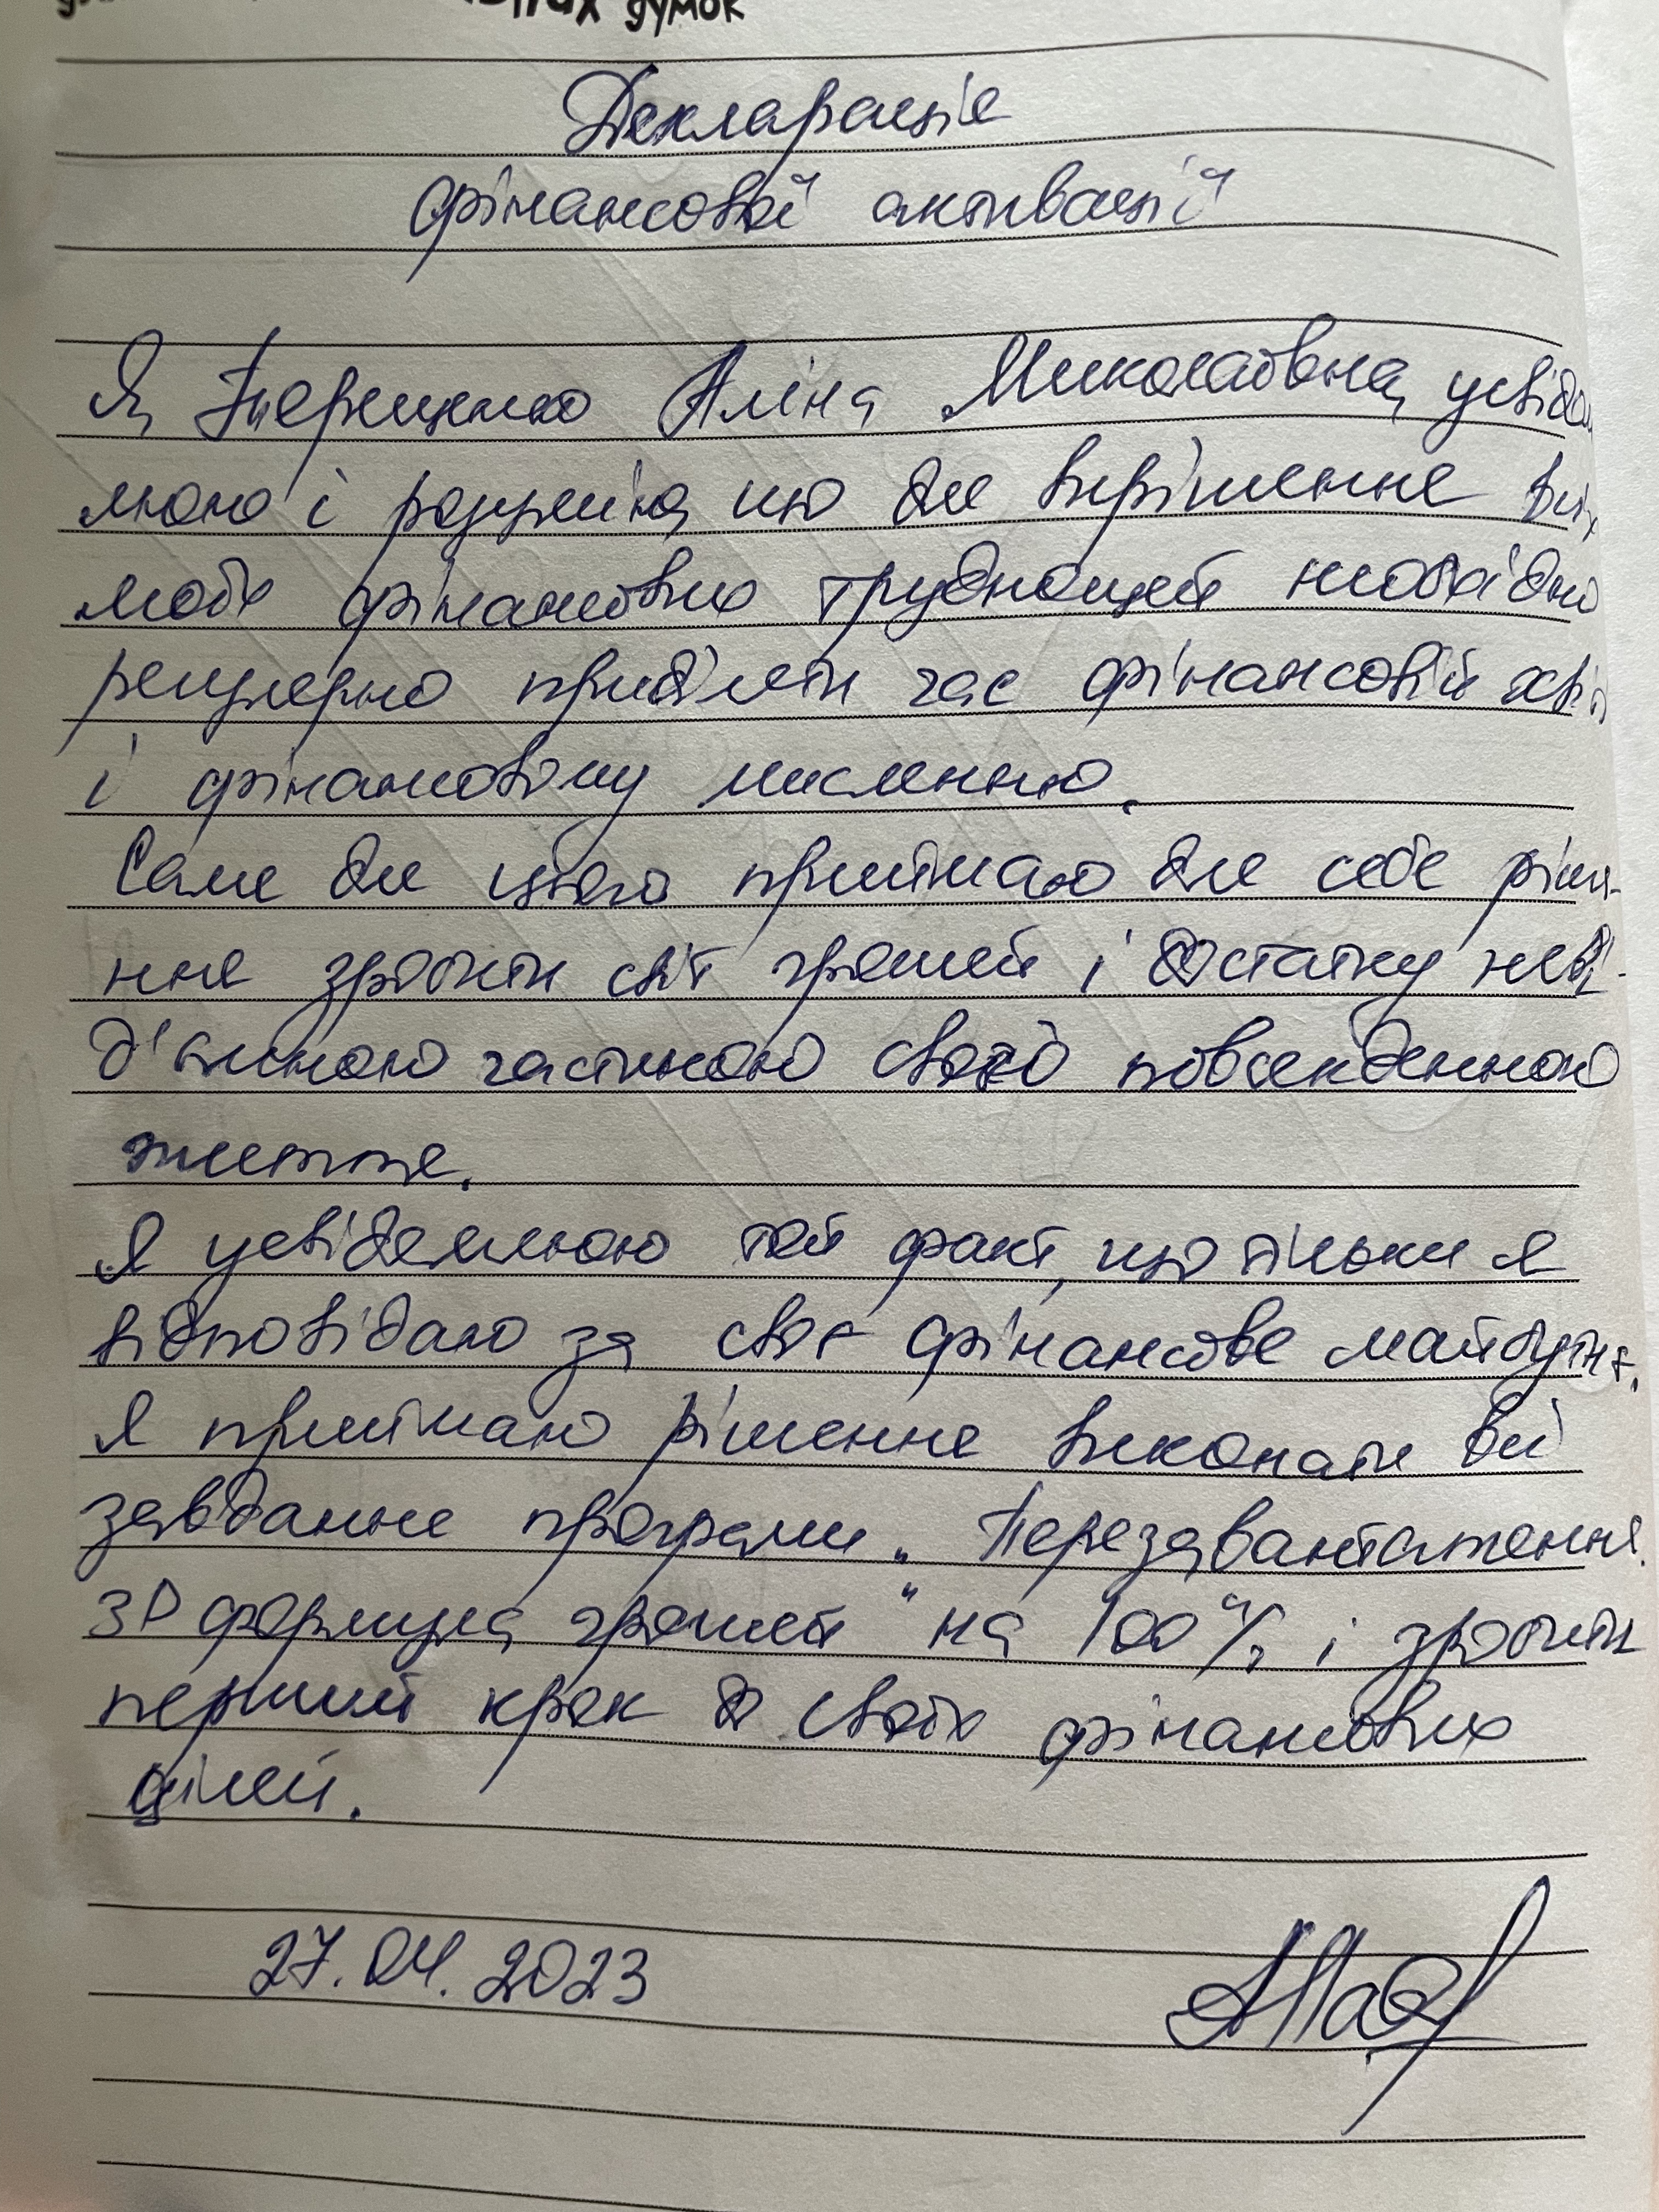 думок
Декларація
фінансової активації
Я, Аліна Миколаївна, усвідом
люю і розумію, що для вирішення всіх
моїх фінансових труднощей необхідно
регулярно приділяти час фінансовій
і фінансовому мисленню.
Саме для цього приймаю для себе ріше-
ння зробити світ грошей і достатку неві-
д'ємною частиною свого повсякденного
життя.
Я усвідомлюю той факт, що тільки я
відповідаю за своє фінансове майбутнє.
Я приймаю рішення виконати всі
завдання програми „Перезавантаження.
3D формула грошей" на 100% і зробити
перший крок до своїх фінансових
цілей.
27.04.2023